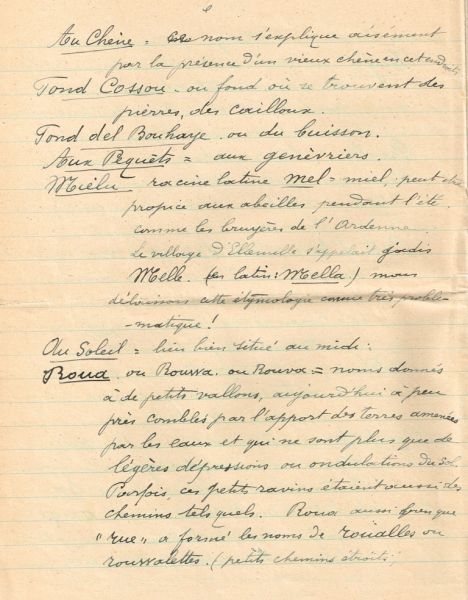 Au Chêne = nom s'explique aisément
par la présence d'un vieux chêne en cet endroit
Fond Cossou ou fond où se trouvent des
pierres, des cailloux.
Fond del Bouhaye ou du buisson.
Aux Pèquêts = aux genévriers.
Mièlu racine latine mel = miel, peut être
propice aux abeilles pendant l'été
comme les bruyères de l'Ardenne.
Le village d'Ellemelle s'appelait jadis
Melle. (en latin: Mella) nous
cette étymologie comme très problé-
-matique!
Au Soleil = lieu bien situé au midi.
Roua ou Rouwa ou Rouva = noms donnés
à de petits vallons, aujourd'hui à peu
près comblés par l'apport des terres amenées
par les eaux et qui ne sont plus que de
légères dépressions ou ondulations du sol.
Parfois, ces petits ravins étaient aussi des
chemins tels quels. Roua aussi bien que
"rue" a formé les noms de roualles ou
rouwalettes. (petits chemins étroits;